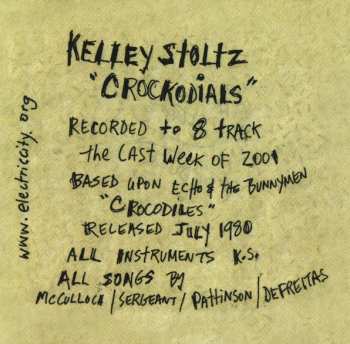 KELLEY STOLTZ
"CROCKODIALS"
RECORDED to 8 tRACK
the LAST WEEK OF 2001
BASED UPON ECHO & the BUNNYMEN
"CROCODILES"
RELEASED JULY 1980
ALL INSTRUMENTS K.S.
ALL SONGS BY
McCULLOCH / SERGEANT / PAttINSON / DEFREITAS
www.electricity.org